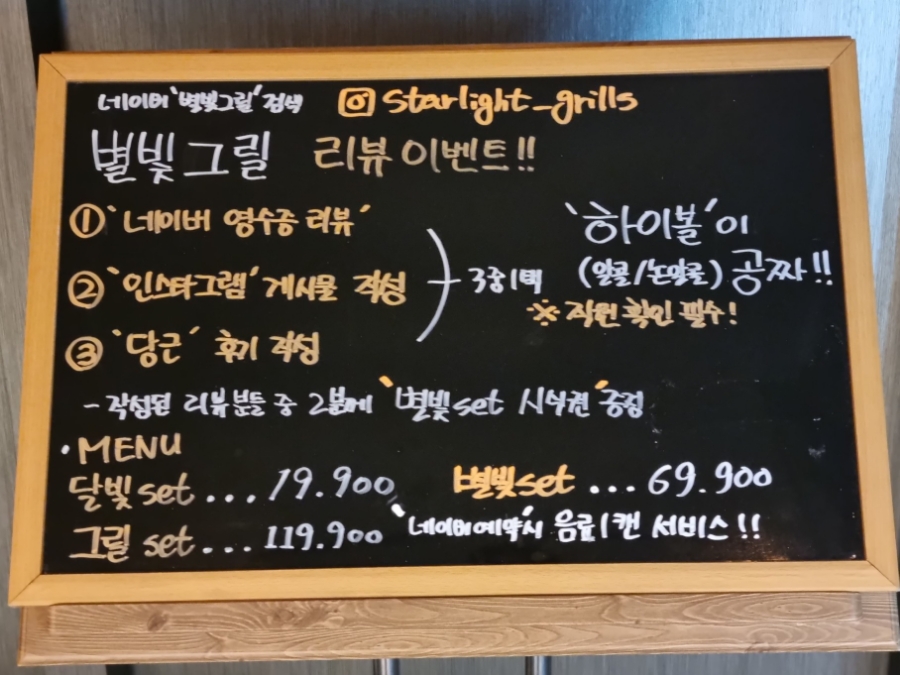 네이버 '별빛그릴' 검색 starlight_grills
별빛그릴 리뷰 이벤트!!
① '네이버 영수증 리뷰'
② '인스타그램' 게시물 작성
③ '당근' 후기 작성
3중 1택
'하이볼'이
(알콜/논알콜) 공짜!!
※ 직원 확인 필수!
- 작성된 리뷰분들 중 2분께 '별빛set 시식권' 증정
· MENU
달빛set ... 79.900 별빛set ... 69.900
그릴 set ... 119.900 '네이버예약'시 음료1캔 서비스!!